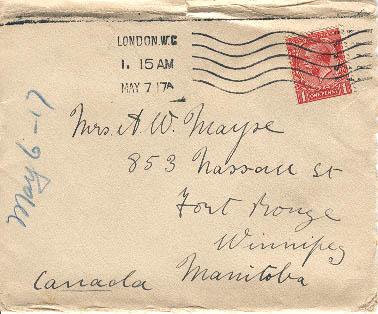 LONDON.W.C
1. 15 AM
MAY 7 17
ONE PENNY
May 6-17
Mrs A. W. Mayse
853 Nassau St
Fort Rouge
Winnipeg
Manitoba
Canada